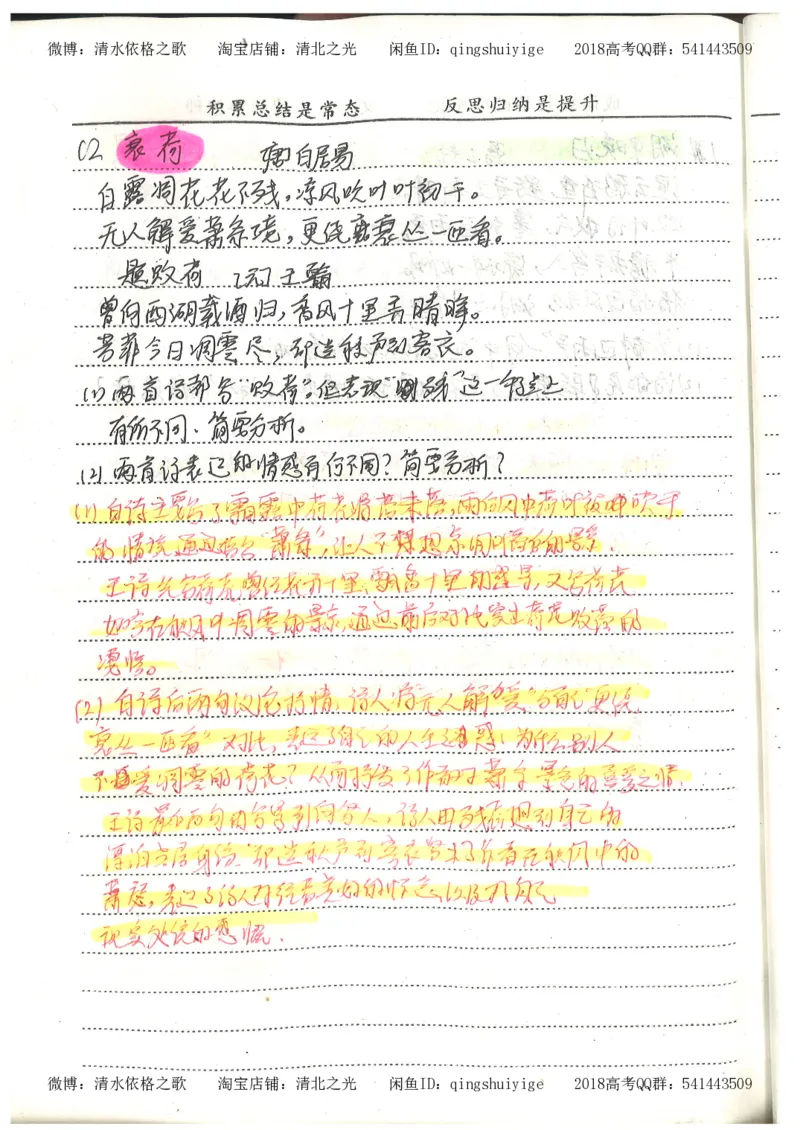 微博：清水依格之歌 淘宝店铺：清北之光 闲鱼ID：qingshuiyige 2018高考QQ群：541443509
积累总结是常态 反思归纳是提升
02 衰荷 唐 白居易
白露凋花花不残，凉风吹叶叶初干。
无人解爱萧条境，更绕衰丛一匝看。
题败荷 王翰
曾向西湖载酒归，香风十里弄晴晖。
芳菲今日凋零尽，却送秋声到客衣。
(1) 两首诗都写“败荷”，但表现“残”这一特点上
有所不同，简要分析。
(2) 两首诗表达的情感有何不同？简要分析？
(1) 白诗主要写了霜露中荷花凋落未落，雨后风中荷叶被吹干
的情境，通过“萧条”，让人不禁想
王诗先写荷花曾经花开十里、飘香十里的盛景，又写荷花
如今在秋风中凋零的景象，通过前后对比突出荷花败落的
凄惨。
(2) 白诗后两句议论抒情，诗人将“无人解爱”与自己“更绕
衰丛一匝看”对比，表达了自己的人生，为什么别人
不爱凋零的荷花？从而抒发了作者对萧条景色的喜爱之情。
王诗最后两句由写景到写人，诗人由残荷想到自己的
漂泊客居身份，“却送秋声到客衣”写出了身在秋风中的
萧瑟，表达了诗人对往昔美好的怀念以及对自己
现实处境的悲慨。
微博：清水依格之歌 淘宝店铺：清北之光 闲鱼ID：qingshuiyige 2018高考QQ群：541443509